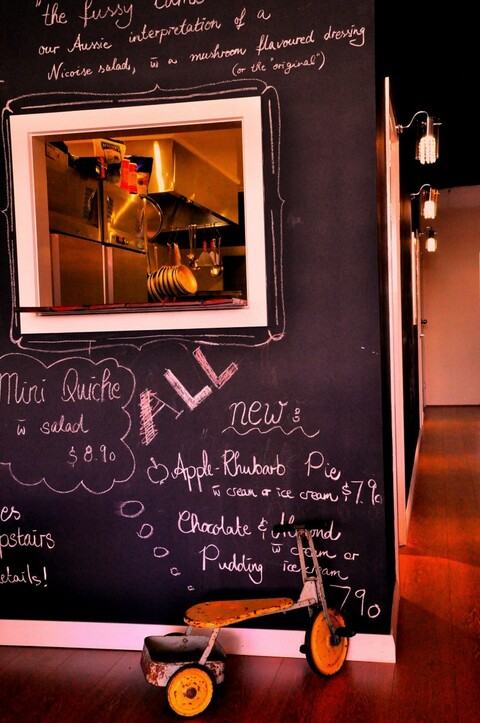 "the fussy
our Aussie interpretation of a
Nicoise salad, w̄ a mushroom flavoured dressing
(or the "original")
Mini Quiche
w̄ salad
$8.90
ALL
new :
Apple-Rhubarb Pie
w̄ cream or ice cream $7.90
Chocolate & Almond
Pudding w̄ cream or
ice cream
790
es
pstairs
etails!